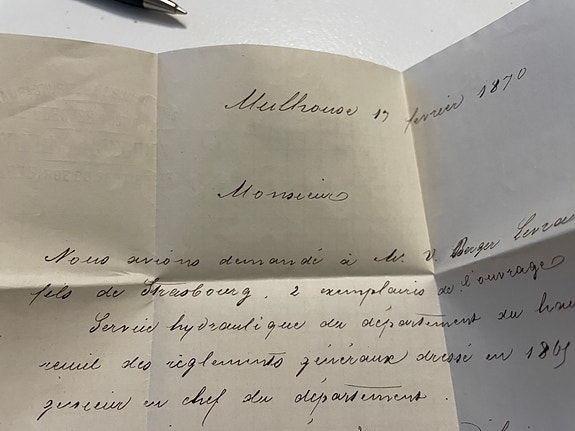 Mulhouse 17 février 1870
Monsieur
Nous avions demandé à Mr. V. Berger Levrau
fils de Strasbourg, 2 exemplaires de l'ouvrage
Service hydraulique du département du hau
recueil des règlements généraux dressé en 1865
génieur en chef du département.